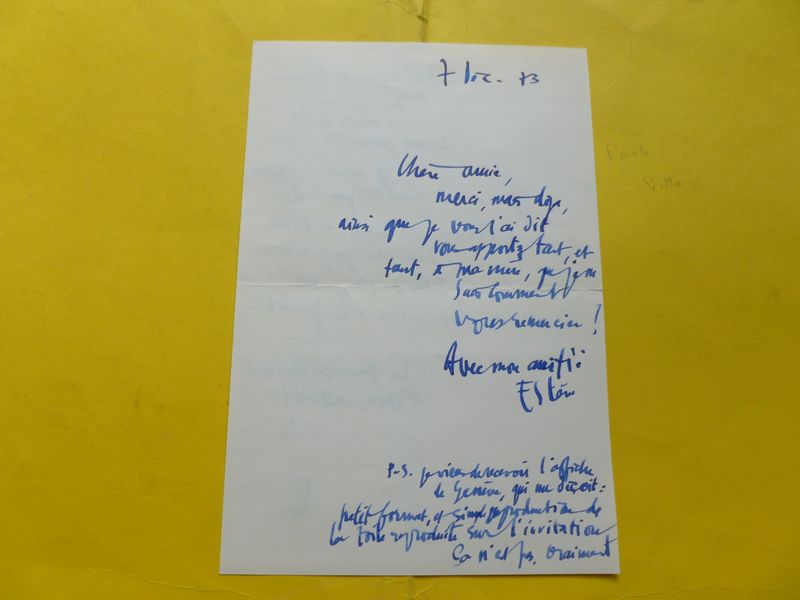 7 Déc. 83
Chère amie,
merci, mais déjà,
ainsi que je vous l'ai dit
vous apportez tant, et
tant, à ma mère, que je ne
sais comment
vous remercier !
Avec mon amitié
P-S. je viens de recevoir l'affiche
de Genève, qui me déçoit :
petit format, et simple reproduction de
la toile reproduite sur l'invitation
Ça n'est pas, vraiment